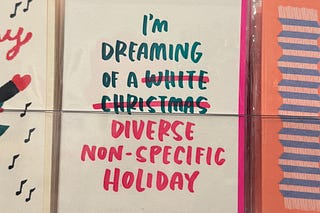 I'M
DREAMING
OF A WHITE
CHRISTMAS
DIVERSE
NON-SPECIFIC
HOLIDAY